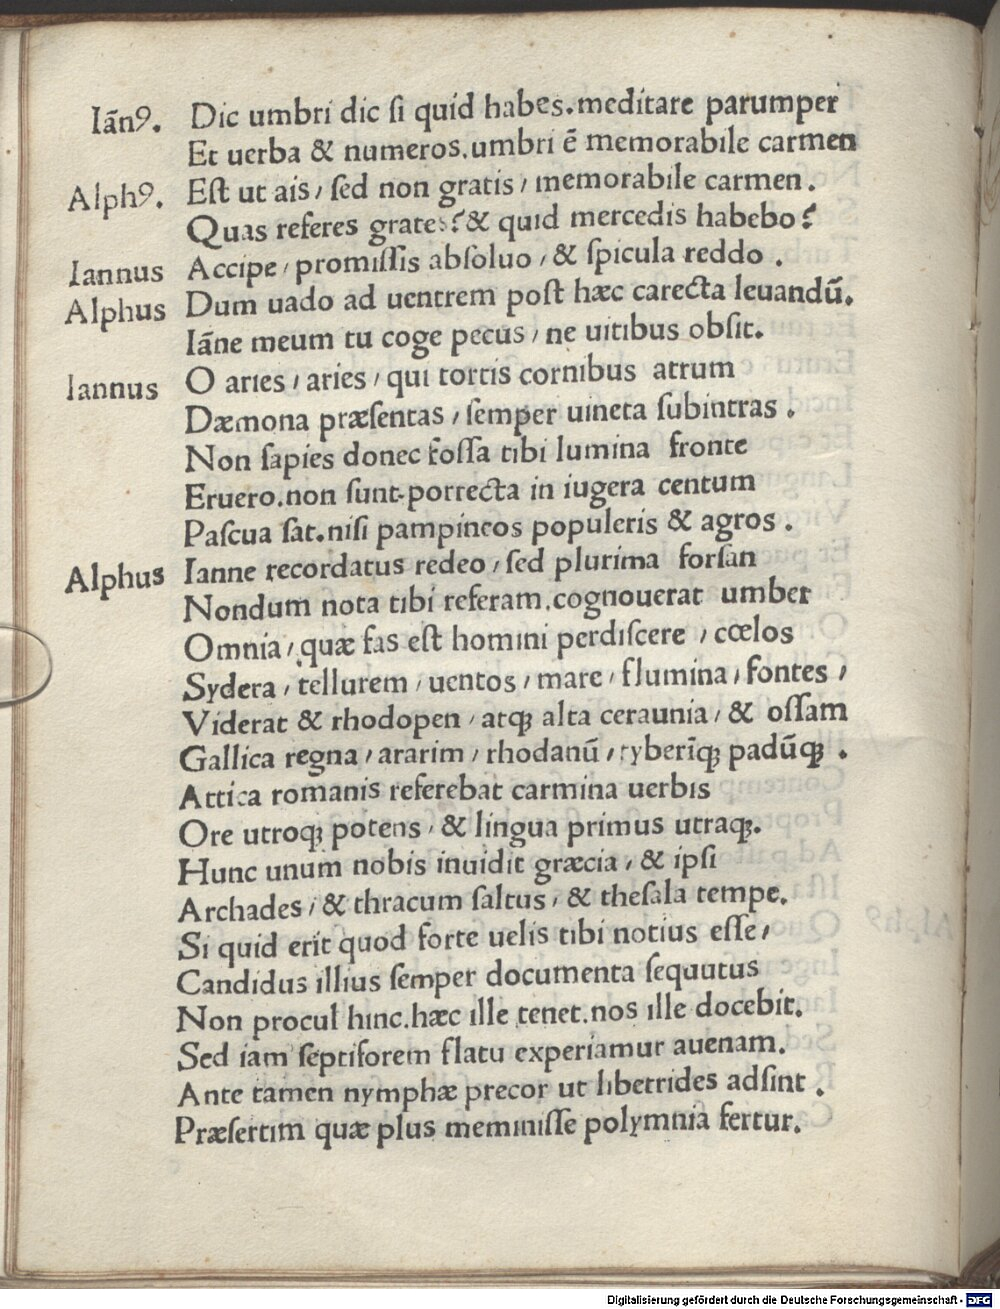 Iãnꝰ. Dic umbri dic ſi quid habes.meditare parumper
Et uerba & numeros.umbri ẽ memorabile carmen
Alphꝰ. Eſt ut ais / ſed non gratis / memorabile carmen.
Quas referes grates? & quid mercedis habebo?
Iannus Accipe / promiſſis abſoluo / & ſpicula reddo .
Alphus Dum uado ad uentrem poſt hæc carecta leuandũ.
Iãne meum tu coge pecus / ne uitibus obſit.
Iannus O aries / aries / qui tortis cornibus atrum
Dæmona præſentas / ſemper uineta ſubintras .
Non ſapies donec foſſa tibi lumina fronte
Eruero.non ſunt porrecta in iugera centum
Paſcua ſat.niſi pampineos populeris & agros .
Alphus Ianne recordatus redeo / ſed plurima forſan
Nondum nota tibi referam.cognouerat umber
Omnia / quæ fas eſt homini perdiſcere / cœlos
Sydera / tellurem / uentos / mare / flumina / fontes /
Viderat & rhodopen / atqꝫ alta ceraunia / & oſſam
Gallica regna / ararim / rhodanũ / tyberĩqꝫ padũqꝫ .
Attica romanis referebat carmina uerbis
Ore utroqꝫ potens / & lingua primus utraqꝫ.
Hunc unum nobis inuidit græcia / & ipſi
Archades / & thracum ſaltus / & theſala tempe.
Si quid erit quod forte uelis tibi notius eſſe /
Candidus illius ſemper documenta ſequutus
Non procul hinc.hæc ille tenet.nos ille docebit.
Sed iam ſeptiforem flatu experiamur auenam.
Ante tamen nymphæ precor ut libetrides adſint .
Præſertim quæ plus meminiſſe polymnia fertur.
Digitalisierung gefördert durch die Deutsche Forschungsgemeinschaft - DFG